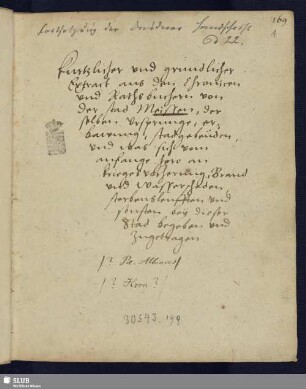 169
Fortsetzung der Dresdener Handschrift
Kurtzlicher und gründlicher
Extract aus den Chroniken
und Rathsbüchern von
der stad Meissen, der
selben Ursprunge, er
bawung, stadgebeuden,
und was sich vom
anfange hero an
kriegesverherung, Brand
und Wasserscheden,
sterbensleufften und
sonsten bey dieser
Stad begeben und
Zugetragen
30543.199
SLUB